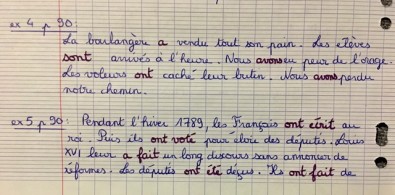 ex 4 p 90 :
La boulangère a vendu tout son pain. Les élèves
sont arrivés à l'heure. Nous avons eu peur de l'orage.
Les voleurs ont caché leur butin. Nous avons perdu
notre chemin.
ex 5 p 90 : Pendant l'hiver 1789, les Français ont écrit au
roi. Puis ils ont voté pour élire des députés. Louis
XVI leur a fait un long discours sans annoncer de
réformes. Les députés ont été déçus. Ils ont fait de